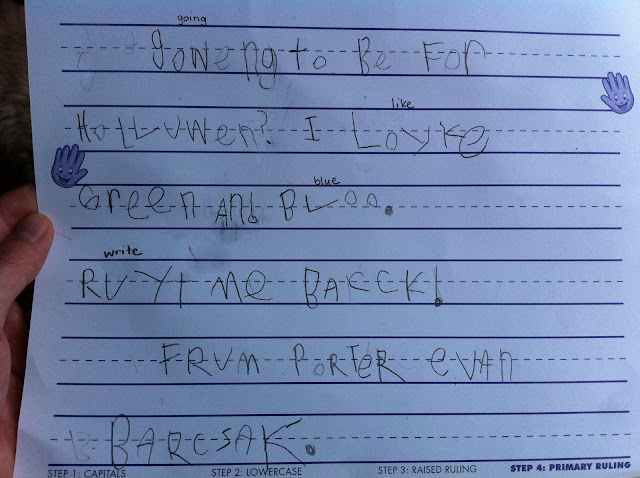 going
goweng to Be For
like
HoLLUWen? I LoyKe
blue
Green AND BLOO.
write
RUYT Me BAKCK!
FRUM PORTER EVAN
BARCSAK.
STEP 1: CAPITALS STEP 2: LOWERCASE STEP 3: RAISED RULING STEP 4: PRIMARY RULING